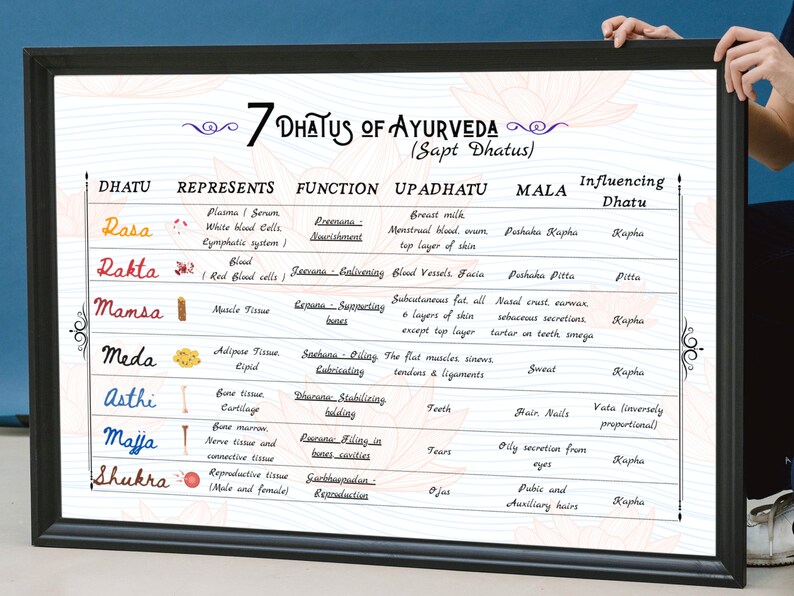 7 Dhatus of Ayurveda
(Sapt Dhatus)
DHATU
REPRESENTS
FUNCTION
UPADHATU
MALA
Influencing
Dhatu
Rasa
Plasma ( Serum,
White blood Cells,
Lymphatic system )
Preenana -
Nourishment
Breast milk,
Menstrual blood, ovum,
top layer of skin
Poshaka Kapha
Kapha
Rakta
Blood
( Red Blood cells )
Jeevana - Enlivening
Blood Vessels, Facia
Poshaka Pitta
Pitta
Mamsa
Muscle Tissue
Lepana - Supporting
bones
Subcutaneous fat, all
6 layers of skin
except top layer
Nasal crust, earwax,
sebaceous secretions,
tartar on teeth, smega
Kapha
Meda
Adipose Tissue,
Lipid
Snehana - Oiling,
Lubricating
The flat muscles, sinews,
tendons & ligaments
Sweat
Kapha
Asthi
Bone tissue,
Cartilage
Dharana- Stabilizing,
holding
Teeth
Hair, Nails
Vata (inversely
proportional)
Majja
Bone marrow,
Nerve tissue and
connective tissue
Poorana- Filing in
bones, cavities
Tears
Oily secretion from
eyes
Kapha
Shukra
Reproductive tissue
(Male and female)
Garbhaopadan -
Reproduction
Ojas
Pubic and
Auxiliary hairs
Kapha